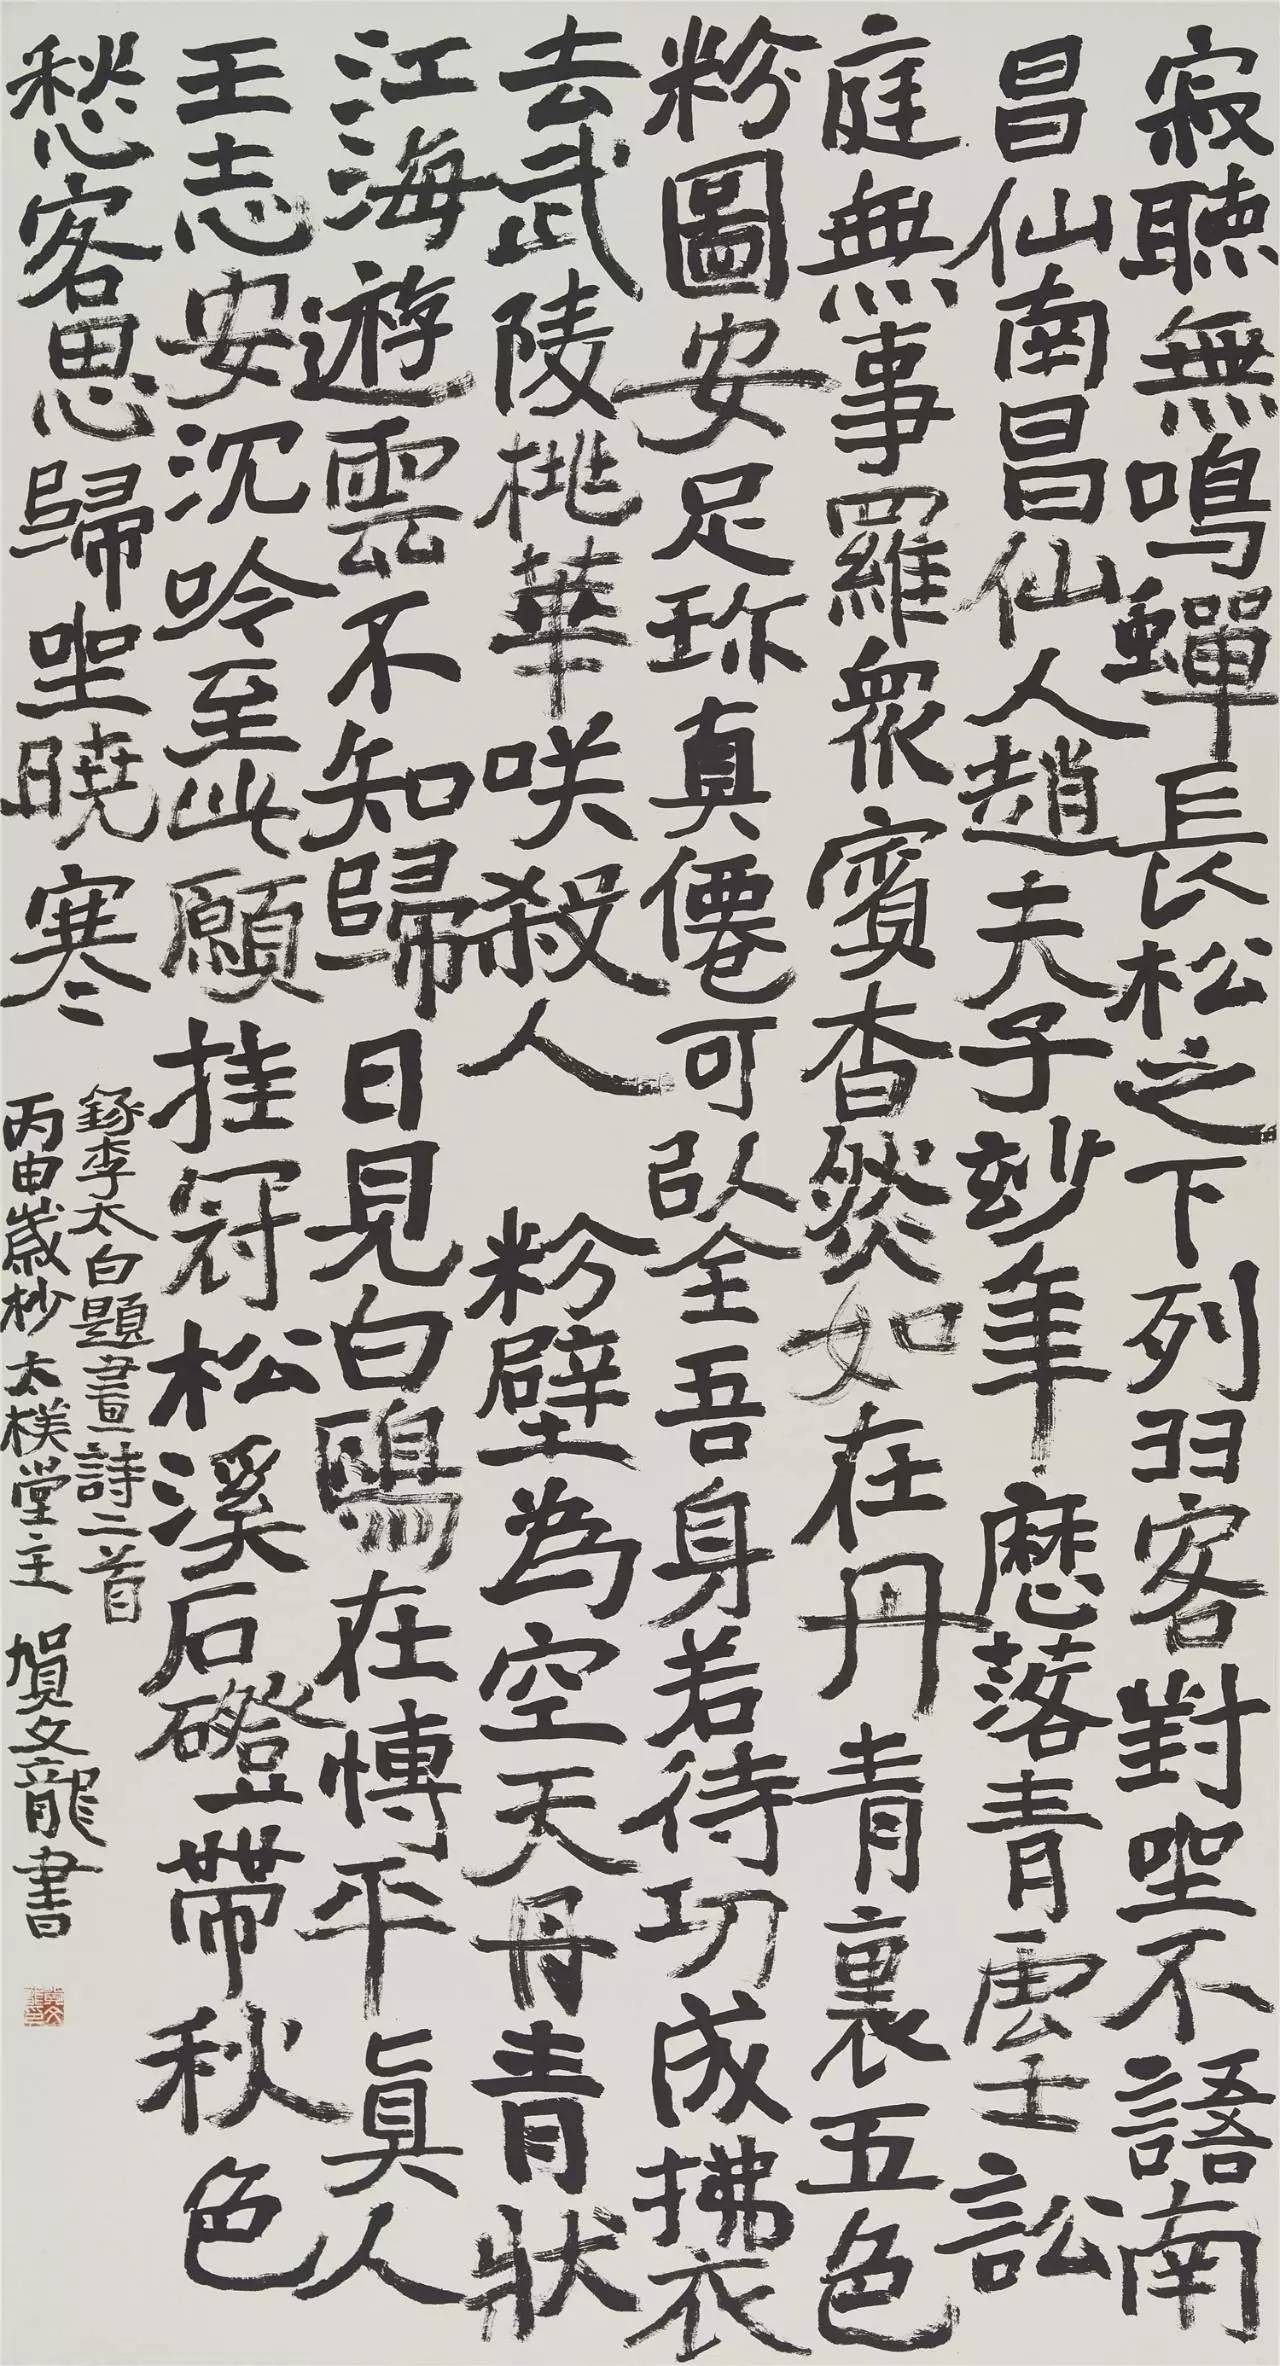 寂聽無鳴蟬長松之下列羽客對坐不語南
昌仙南昌仙人趙夫子妙年歷落青雲士訟
庭無事羅眾賓杳然如在丹青裏五色
粉圖安足珍真僊可以全吾身若待功成拂衣
去武陵桃華咲殺人 粉壁為空天丹青狀
江海遊雲不知歸日見白鷗在愽平真人
王志安沉吟至此願挂冠松溪石磴帶秋色
愁客思歸坐曉寒
錄李太白題畫詩二首
丙申歲杪太樸堂主 賀文龍書